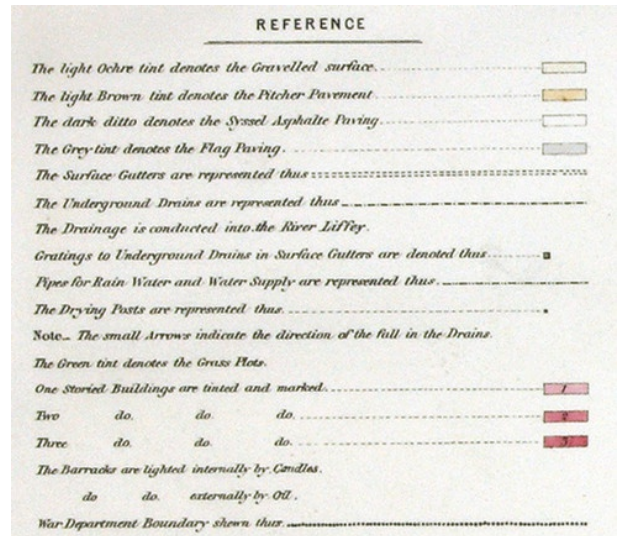 REFERENCE
The light Ochre tint denotes the Gravelled surface
The light Brown tint denotes the Pitcher Pavement
The dark ditto denotes the Syssel Asphalte Paving.
The Grey tint denotes the Flag Paving.
The Surface Gutters are represented thus
The Underground Drains are represented thus
The Drainage is conducted into the River Liffey.
Gratings to Underground Drains in Surface Gutters are denoted thus
Pipes for Rain Water and Water Supply are represented thus.
The Drying Posts are represented thus.
Note_ The small Arrows indicate the direction of the fall in the Drains.
The Green tint denotes the Grass Plots.
One Storied Buildings are tinted and marked. 1
Two do. do. do. 2
Three do. do. do. 3
The Barracks are lighted internally by Candles.
do do. externally by Oil.
War Department Boundary shewn thus.